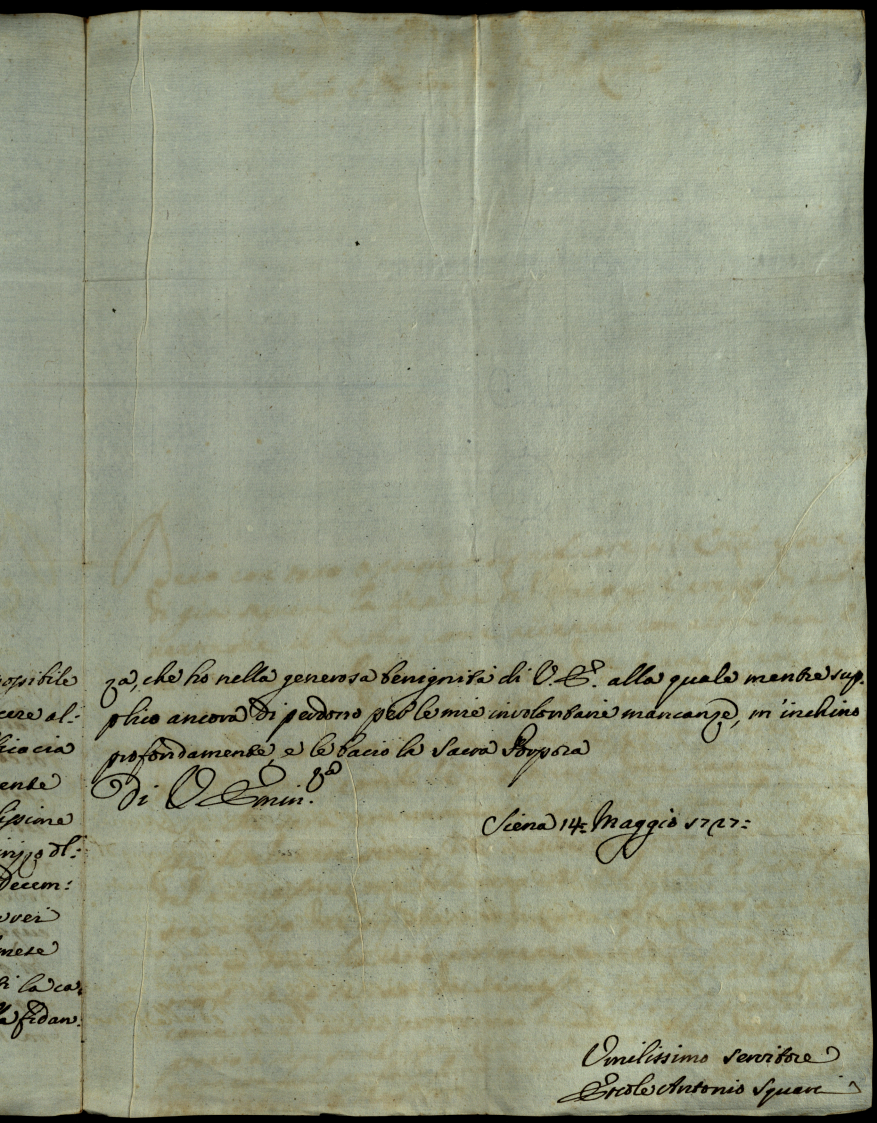 possibile
cere al:
ente
issime
decem:
mese
la ca:
fidan:
za, che ho nella generosa benignità di V. E. alla quale mentre sup:
plico ancora di perdono per le mie involontarie mancanze, m'inchino
profondamente, e le bacio la Sacra Porpora
Di V. Emin.za
Siena 14: Maggio 1727:
Umilissimo servitore
Ercole Antonio